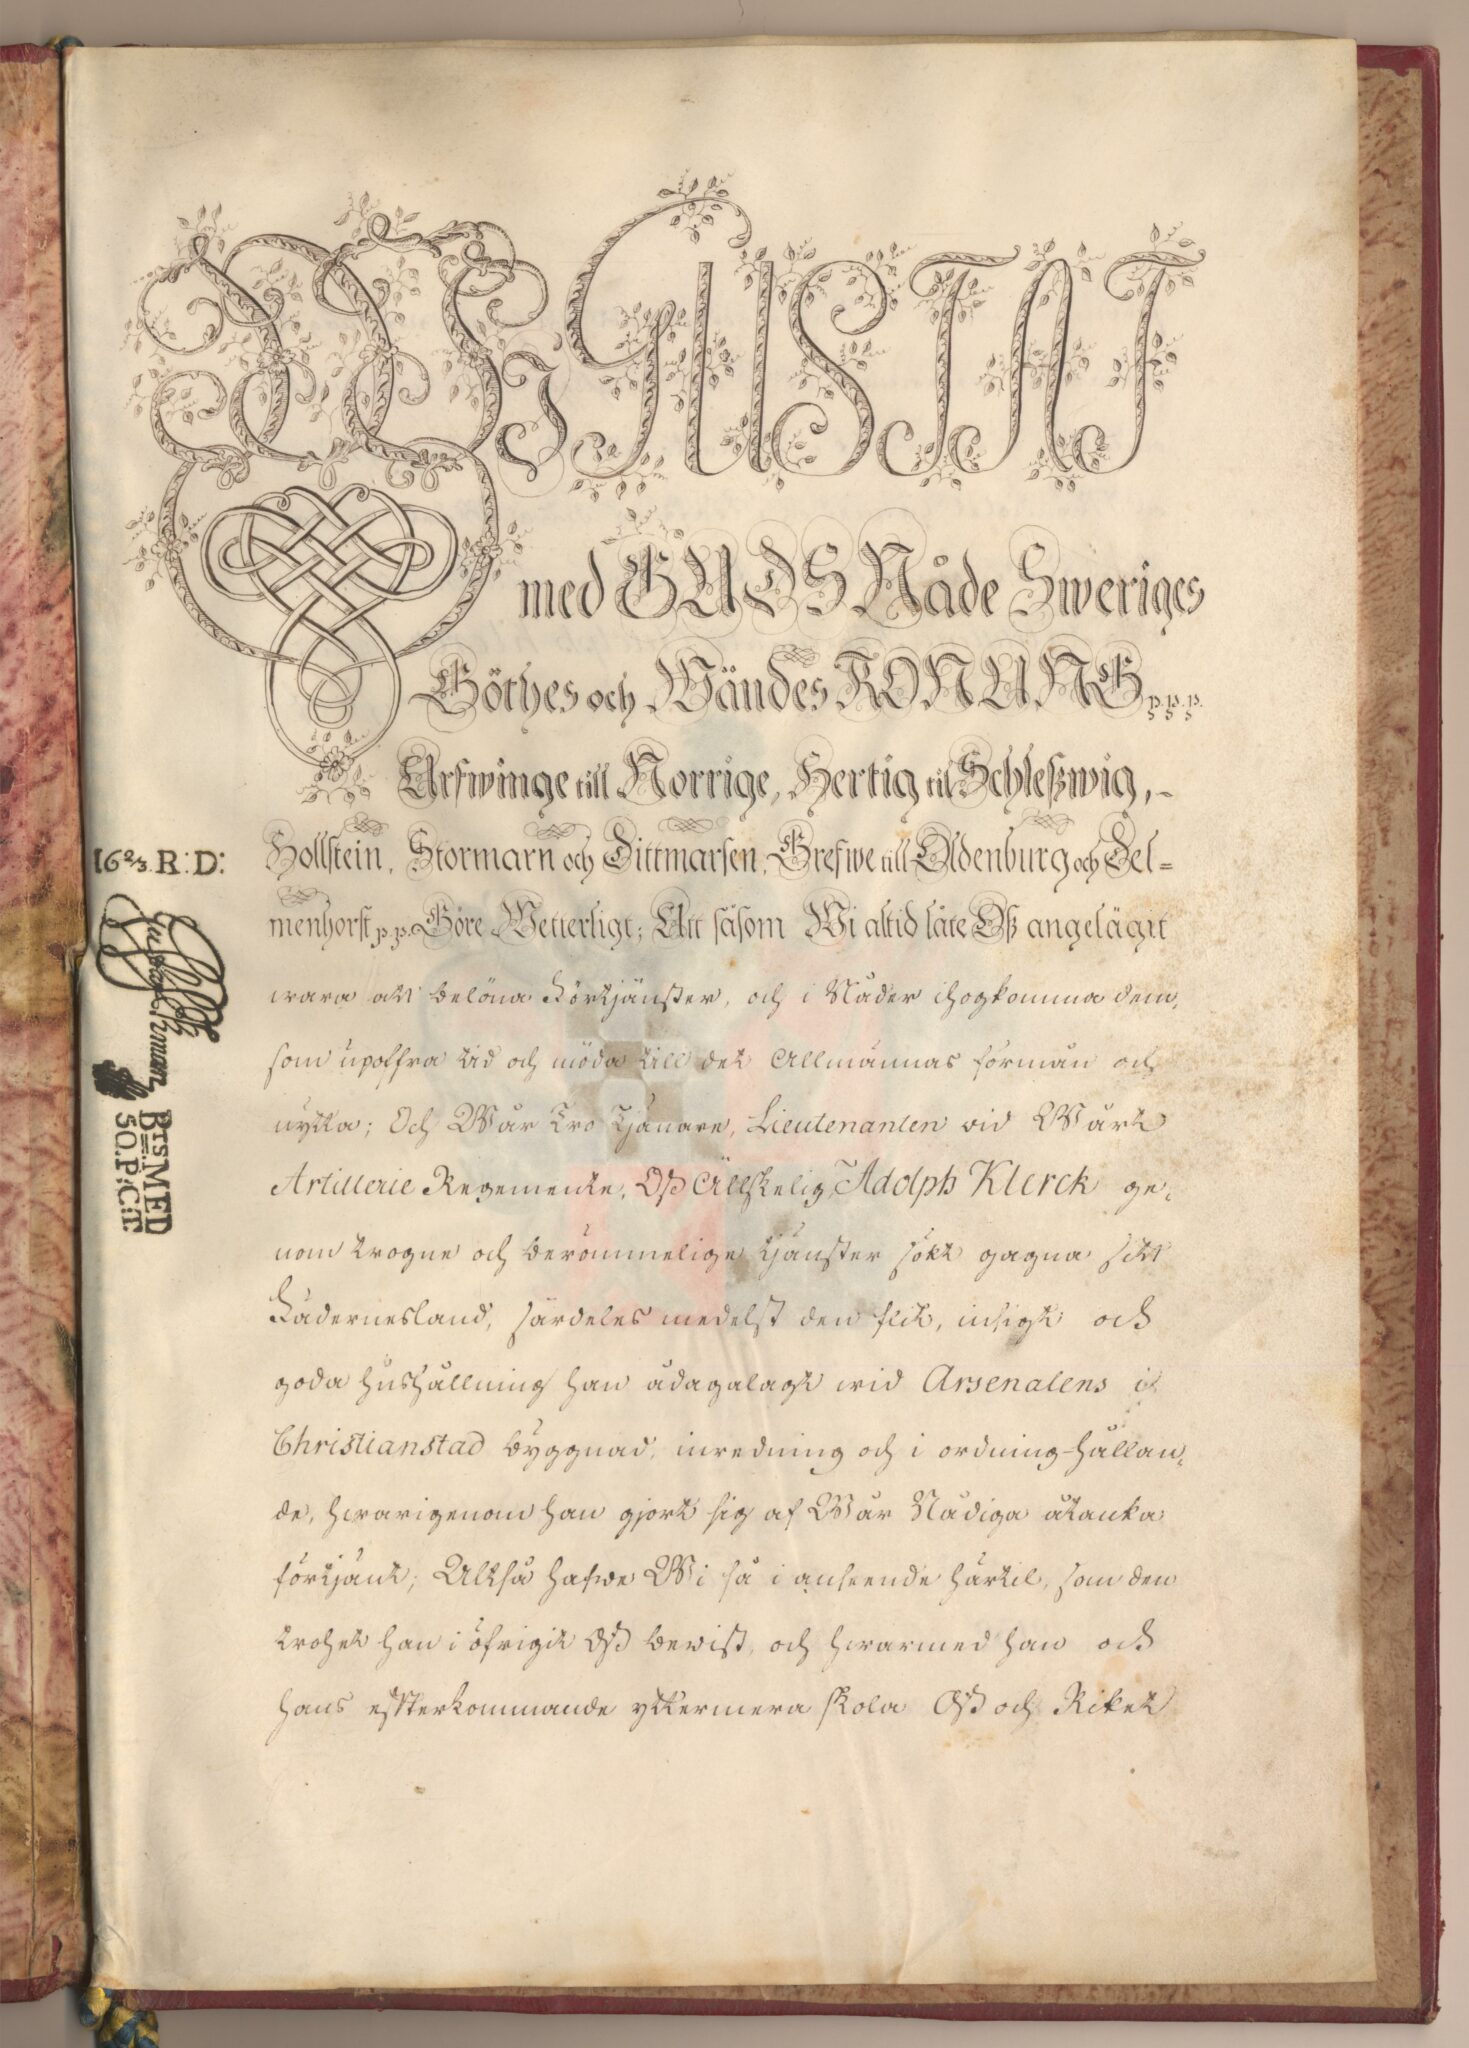 WI GUSTAF
med GUDS Nåde Sweriges
Göthes och Wändes KONUNG p.p.p.
Arfwinge till Norrige, Hertig til Schleßwig,
16 2/3 R:D:
Hollstein, Stormarn och Dittmarsen, Grefwe till Oldenburg och Del=
menhorst p.p. Göre Wetterligt; Att såsom Wi altid låte Oß angelägit
wara att belöna Förtjänster, och i Nåder ihogkomma dem,
som upoffra tid och möda till det Allmännas förmån och
nytta; Och Wår Tro Tjänare, Lieutenanten vid Wårt
Artillerie Regemente, Oß Älskelig, Adolph Klerck ge=
nom trogne och berömmelige tjänster sökt gagna sitt
Fädernesland, särdeles medelst den flit, insigt och
goda hushållning han ådagalagt wid Arsenalens i
Christianstad byggnad, inredning och i ordning-hållan=
de, hwarigenom han gjort sig af Wår Nådiga åtanka
förtjänt; Altså hafwe Wi så i anseende härtil, som den
trohet han i öfrigit Oß bewist, och hwarmed han och
hans effterkommande yttermera skola Oß och Riket
BtsMED
50.P:C:T: